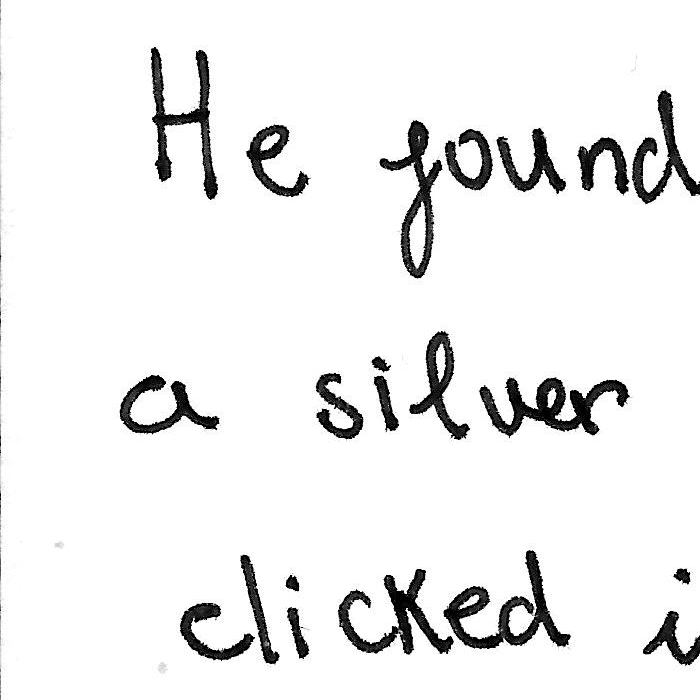 He found
a silver
clicked i